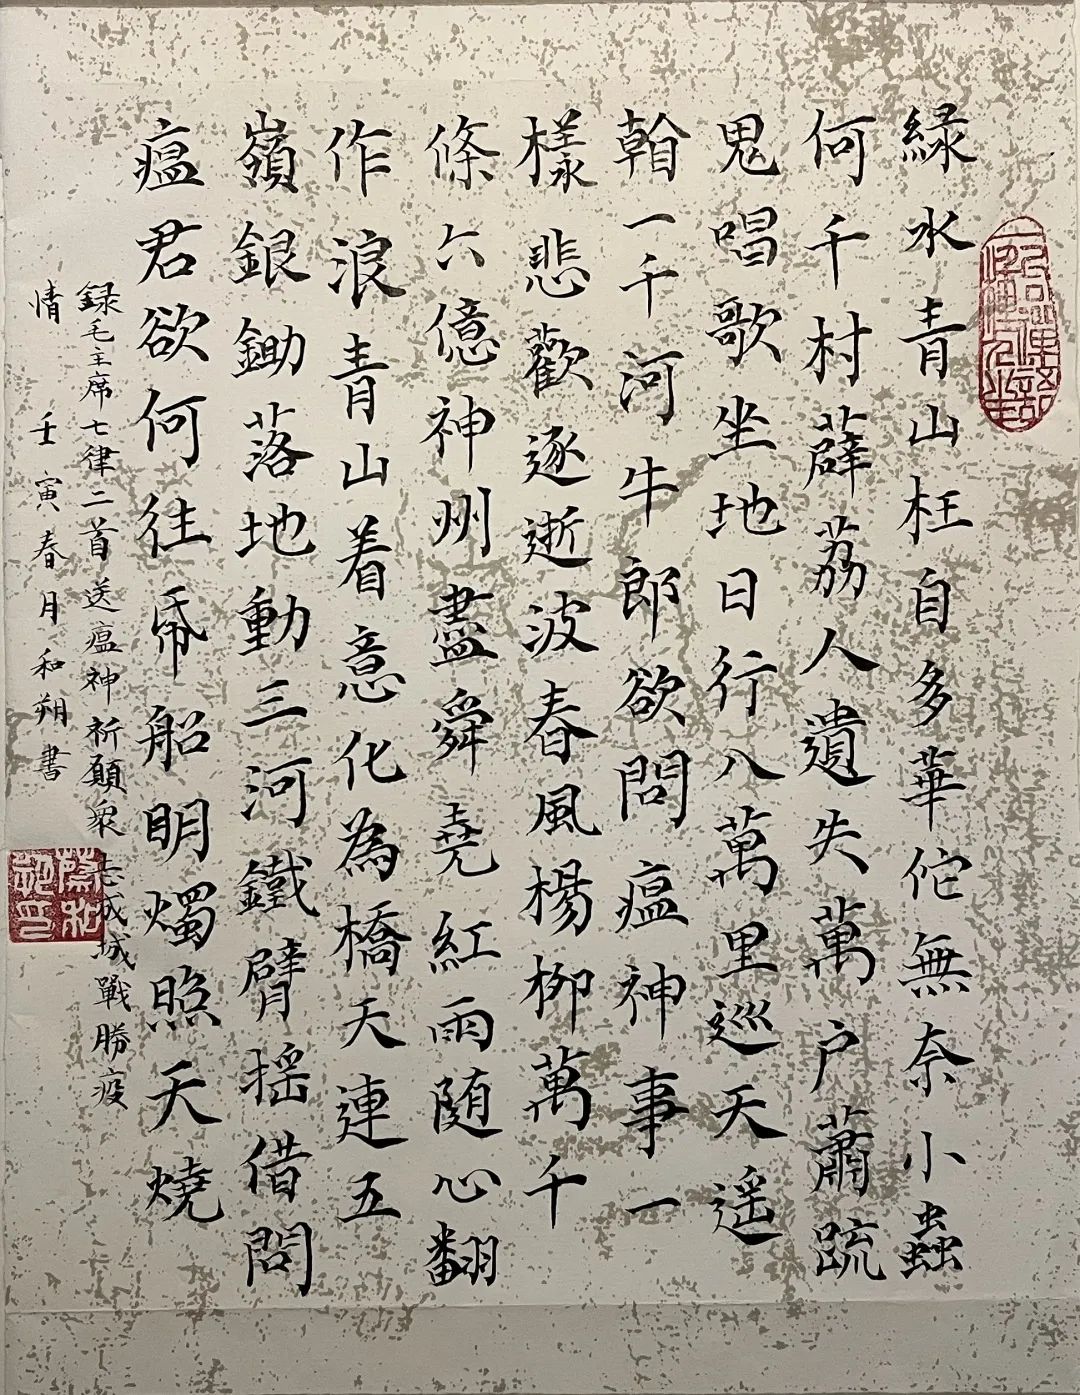 緑水青山枉自多華佗無奈小蟲
何千村薜荔人遺失萬户蕭疏
鬼唱歌坐地日行八萬里巡天遥
一千河牛郎欲問瘟神事一
樣悲歡逐逝波春風楊柳萬千
條六億神州盡舜堯紅雨随心翻
作浪青山着意化為橋天連五
嶺銀鋤落地動三河鐵臂摇借問
瘟君欲何往帋船明燭照天燒
録毛主席七律二首送瘟神祈願衆志成城戰勝疫
情 壬寅春月和朔書